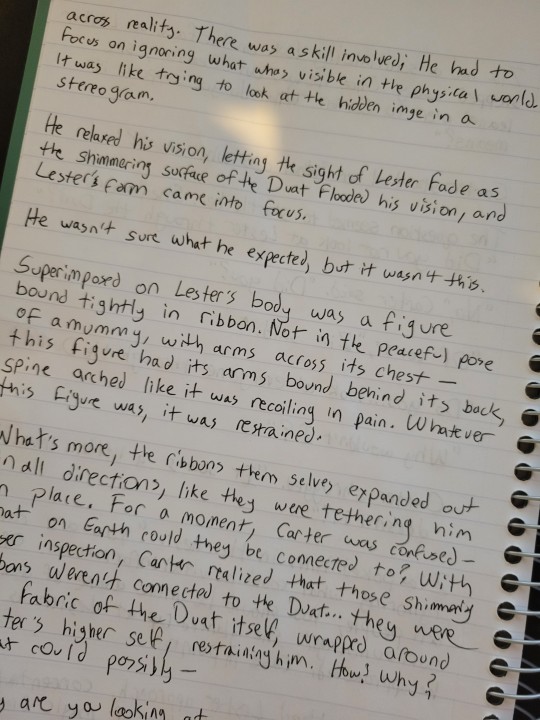 across reality. There was a skill involved; He had to
focus on ignoring what whas visible in the physical world.
It was like trying to look at the hidden imge in a
stereogram.
He relaxed his vision, letting the sight of Lester fade as
the shimmering surface of the Duat Flooded his vision, and
Lester's form came into focus.
He wasn't sure what he expected, but it wasn't this.
Superimposed on Lester's body was a figure
bound tightly in ribbon. Not in the peaceful pose
of a mummy, with arms across its chest —
this figure had its arms bound behind its back,
spine arched like it was recoiling in pain. Whatever
this figure was, it was restrained.
What's more, the ribbons them selves expanded out
in all directions, like they were tethering him
n place. For a moment, Carter was confused —
hat on Earth could they be connected to? With
ser inspection, Carter realized that those shimmery
bons weren't connected to the Duat... they were
fabric of the Duat itself, wrapped around
ter's higher self, restraining him. How? Why?
at could possibly —
y are you looking at